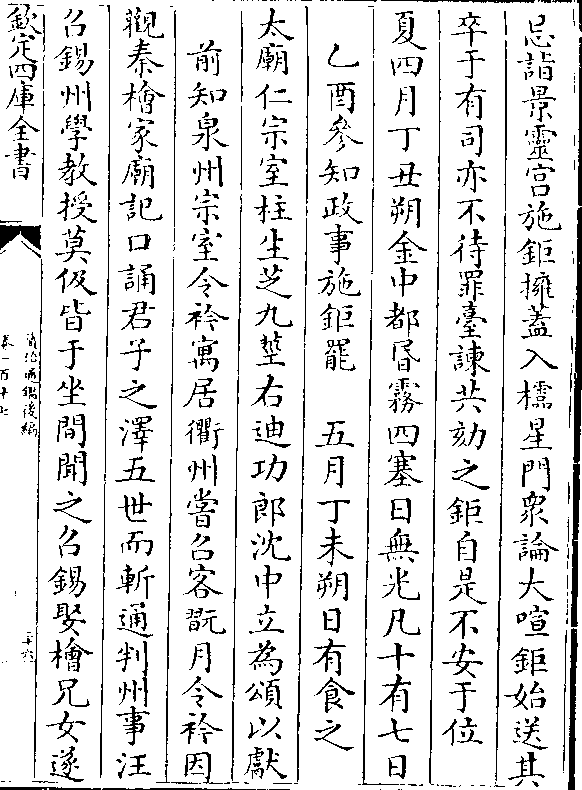 忌詣景靈宫施鉅擁蓋入櫺星門衆論大喧鉅始送其
卒于有司亦不待罪臺諫共劾之鉅自是不安于位
夏四月丁丑朔金中都昏霧四塞日無光凡十有七日
乙酉參知政事施鉅罷　五月丁未朔日有食之
太廟仁宗室柱生芝九莖右迪功郎沈中立為頌以獻
前知泉州宗室令衿寓居衢州嘗召客翫月令衿因
觀秦檜家廟記口誦君子之澤五世而斬通判州事汪
召錫州學教授莫伋皆于坐間聞之召錫娶檜兄女遂
欽定四庫全書
資治通鑑後編
卷一百十七